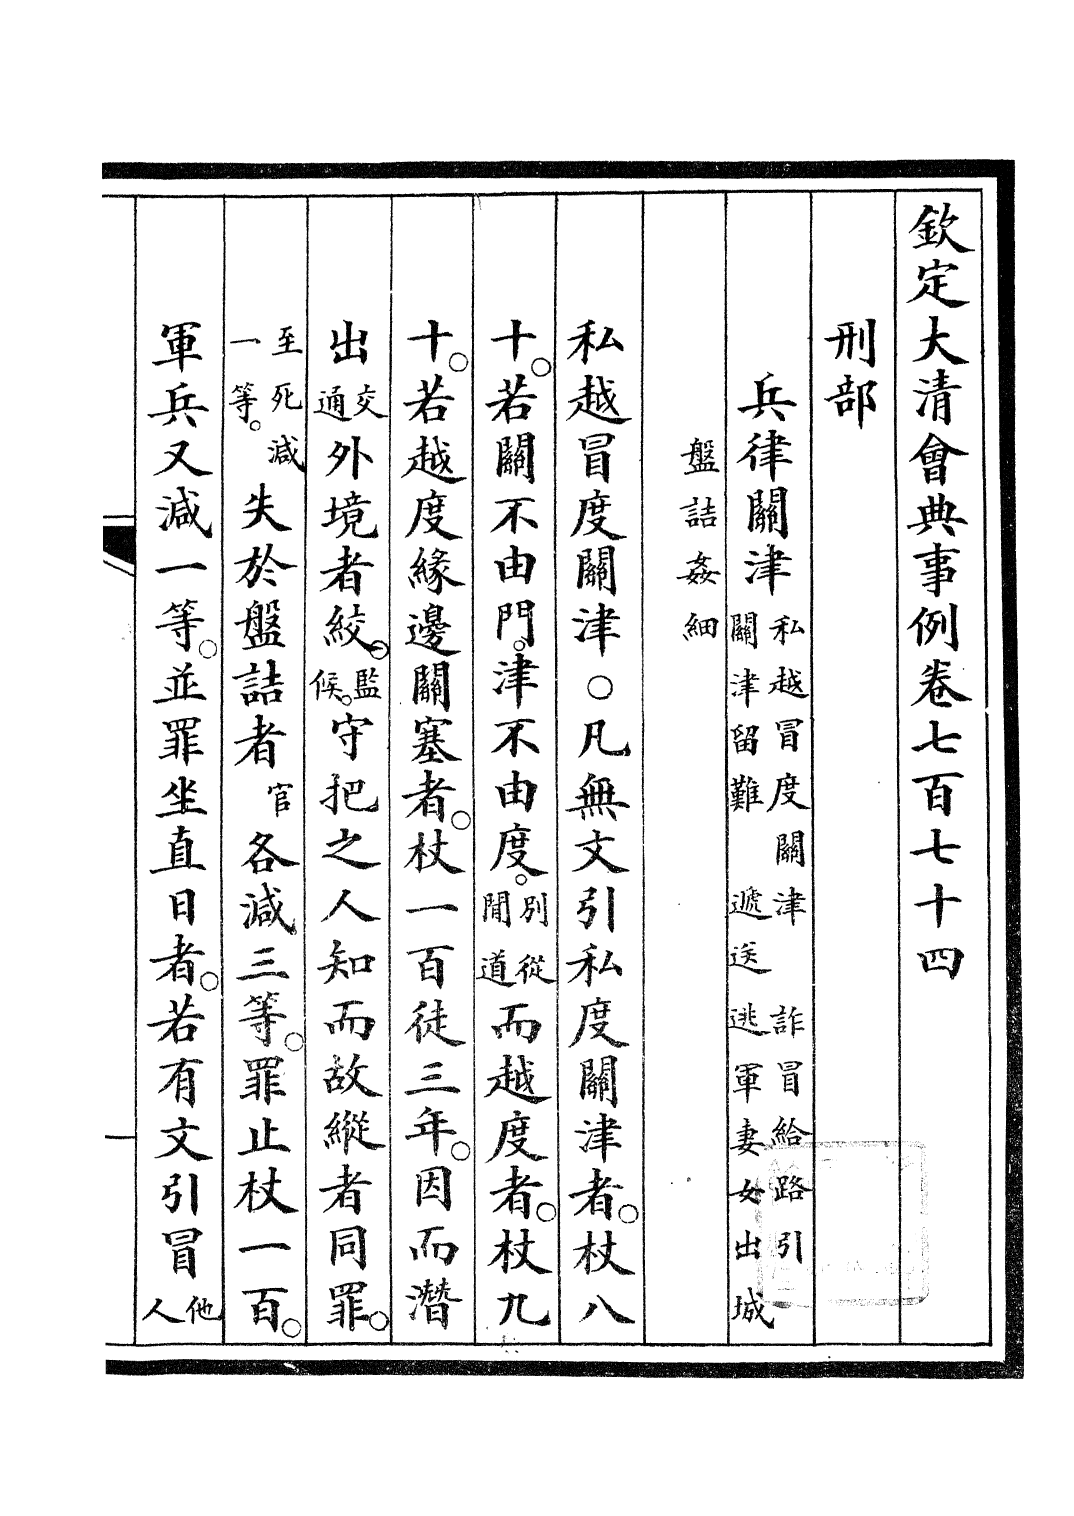 欽定大清會典事例卷七百七十四
刑部
兵律關津私越冒度關津 詐冒給路引
關津留難 遞送逃軍妻女出城
盤詰姦細
私越冒度關津○凡無文引私度關津者。杖八
十。若關不由門。津不由度。別從閒道而越度者。杖九
十。若越度緣邊關塞者。杖一百徒三年。因而潛
出交通外境者絞。監候。守把之人知而故縱者同罪。
至死減一等。失於盤詰者官各減三等。罪止杖一百。
軍兵又減一等。並罪坐直日者。若有文引冒他人